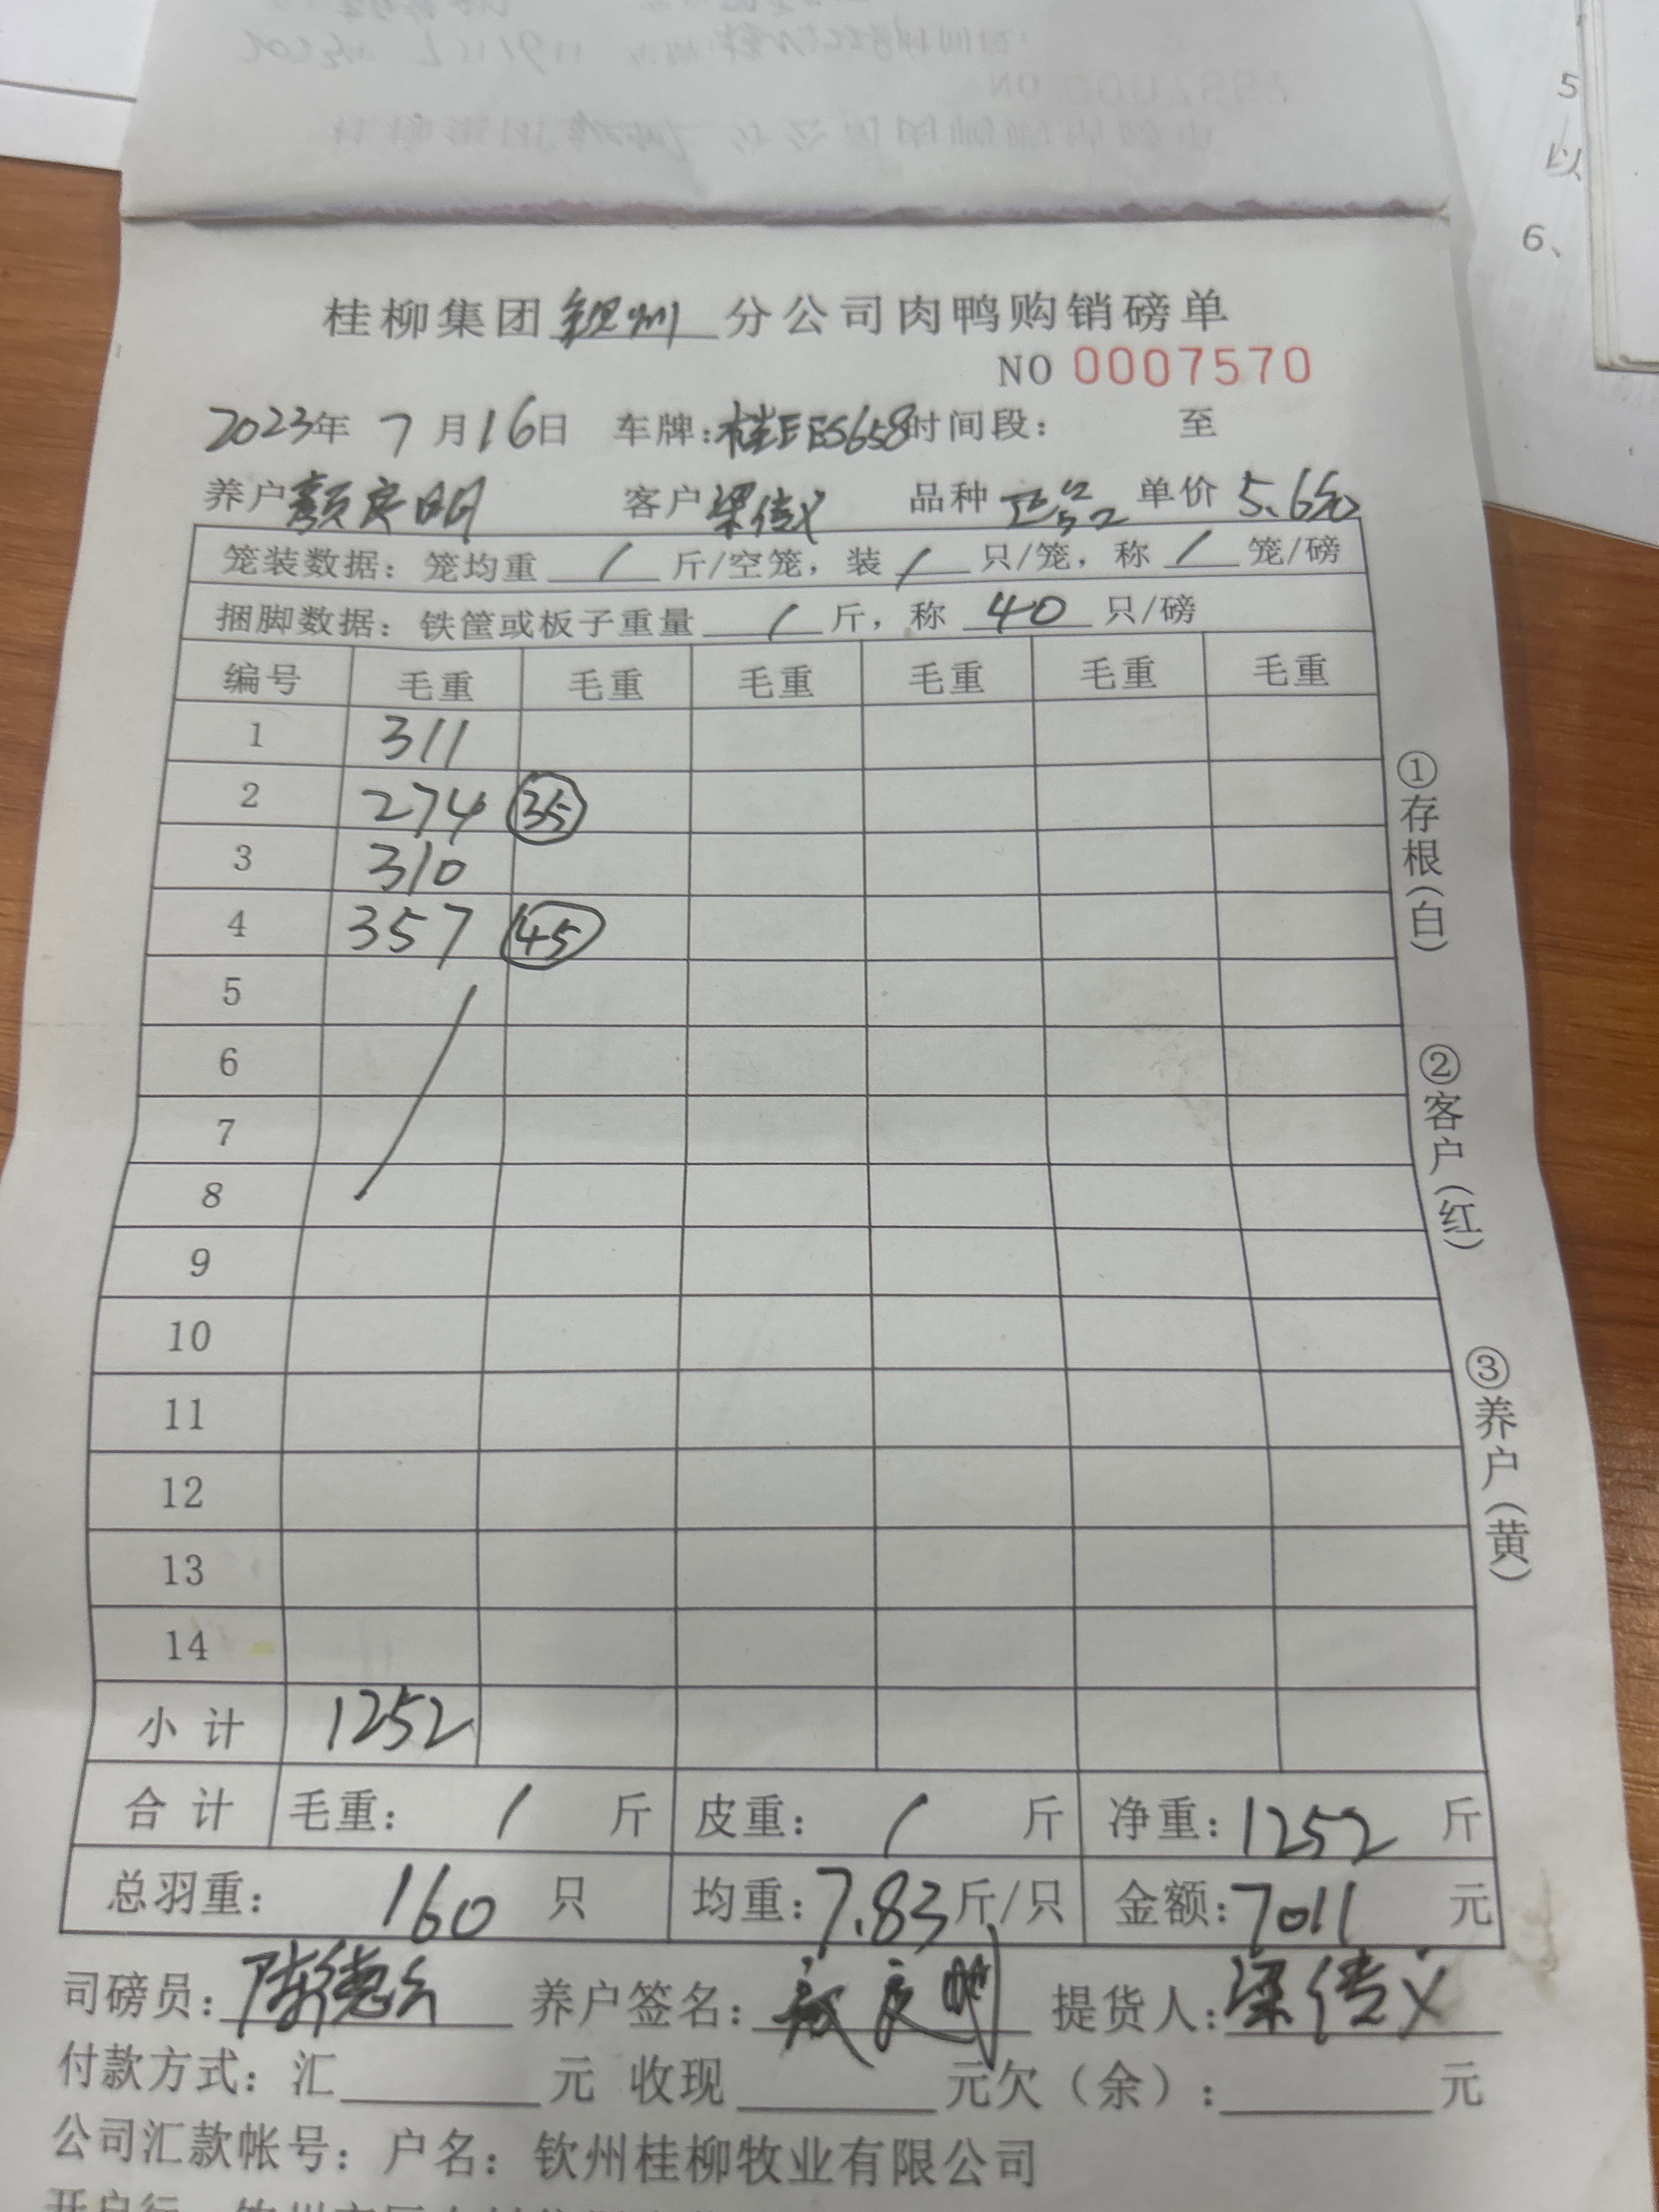 桂柳集团钦州分公司肉鸭购销磅单
NO 0007570
2023年7月16日 车牌:桂EE5658时间段: 至
养户颜良明 客户梁传义 品种正品 单价5.6元
笼装数据: 笼均重 / 斤/空笼, 装 / 只/笼, 称 / 笼/磅
捆脚数据: 铁筐或板子重量 / 斤, 称 40 只/磅
编号 毛重 毛重 毛重 毛重 毛重 毛重
1 311
2 274 35
3 310
4 357 45
5
6
7
8
9
10
11
12
13
14
小计 1252
合计 毛重: / 斤 皮重: / 斤 净重: 1252 斤
总羽重: 160 只 均重: 7.83斤/只 金额: 7011 元
司磅员: 陈德 养户签名: 良明 提货人: 梁传义
付款方式: 汇 元 收现 元欠(余): 元
公司汇款帐号: 户名: 钦州桂柳牧业有限公司
开户行
①存根(白)
②客户(红)
③养户(黄)
5
以
6、